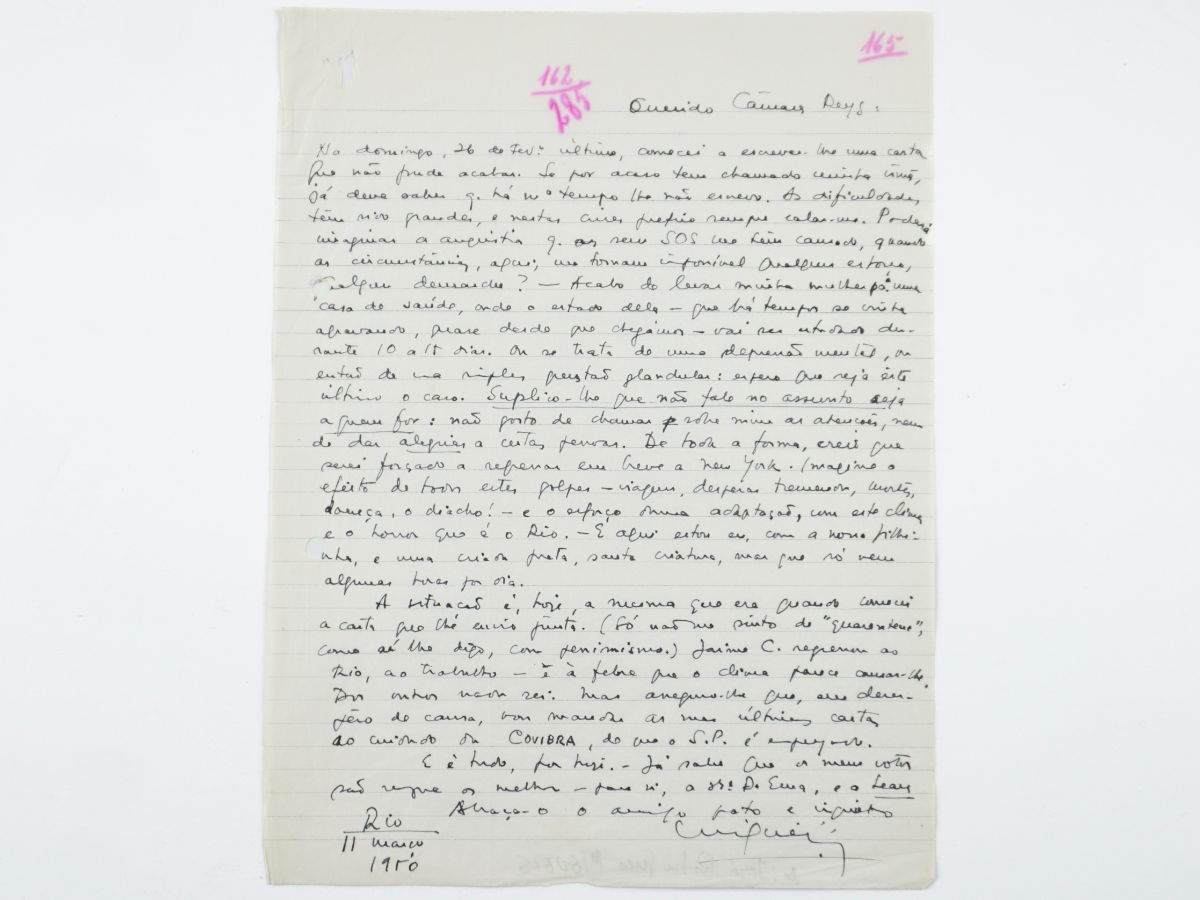 165
162
285
Querido Câmara Reys:
No domingo, 26 de Fev.º último, comecei a escrever-lhe uma carta
que não pude acabar. Se por acaso tem chamado minha irmã,
já deve saber q. há m.º tempo lhe não escrevo. As dificuldades
têm sido grandes, e nestas crises prefiro sempre calar-me. Poderá
imaginar a angústia q. os seus SOS me têm causado, quando
as circunstâncias, aqui, me tornam impossível qualquer esforço,
qualquer demarche? — Acabo de levar minha mulher pª uma
casa de saúde, onde o estado dela — que há tempos se vinha
agravando, quase desde que chegámos — vai ser estudado du-
rante 10 a 15 dias. Ou se trata de uma depressão mental, ou
então de uma simples questão glandular: espero que seja êste
último o caso. Suplico-lhe que não fale no assunto seja
a quem for: não gosto de chamar sobre mim as atenções, nem
de dar alegrias a certas pessoas. De toda a forma, creio que
serei forçado a regressar em breve a New York. Imagine o
efeito de todos estes golpes — viagem, despesas tremendas, mortes,
doença, o diacho! — e o esforço duma adaptação, com este clima
e o horror que é o Rio. — E aqui estou eu, com a nossa filhi-
nha, e uma criada preta, santa criatura, mas que só vem
algumas horas por dia.
A situação é, hoje, a mesma que era quando comecei
a carta que lhe envio junta. (Só não me sinto de "quarentena",
como aí lhe digo, com pessimismo.) Jaime C. regressou ao
Rio, ao trabalho — e à febre que o clima parece causar-lhe.
Dos outros nada sei. Mas asseguro-lhe que, em deses-
pêro de causa, vou mandar as mas últimas cartas
ao cuidado da COVIBRA, de que o S.P. é empregado.
E é tudo, por hoje. — Já sabe que os meus votos
são sempre os melhores — para si, a Srª D. Ema, e a Seara
Abraça-o o amigo grato e inquieto
Miguéis
Rio
11 março
1950